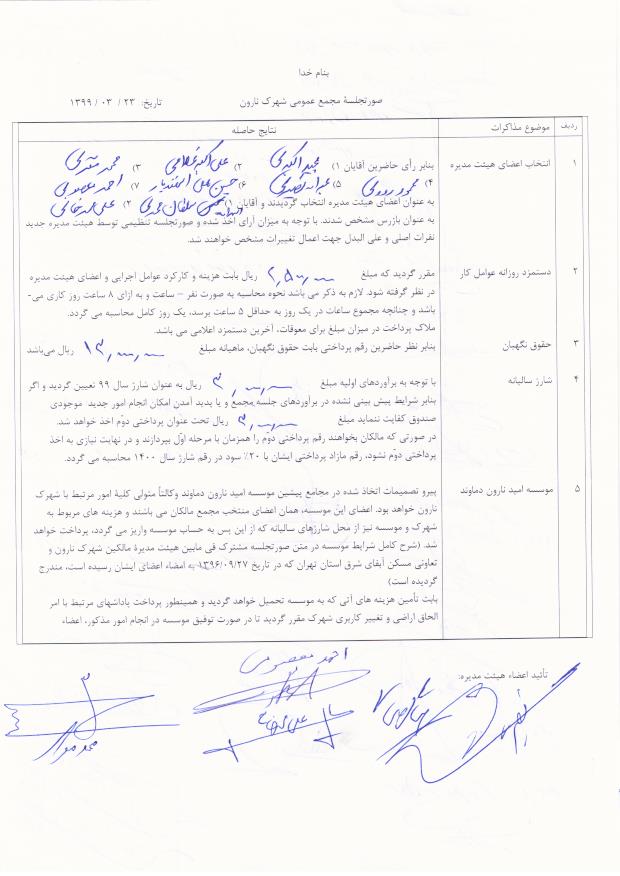 بنام خدا
صورتجلسهٔ مجمع عمومی شهرک نارون
تاریخ: ۲۳ / ۰۳ / ۱۳۹۹
ردیف موضوع مذاکرات نتایج حاصله
۱ انتخاب اعضای هیئت مدیره بنابر رأی حاضرین آقایان ۱) مجید اکبری ۲) علی اکبر غلامی ۳) محمد
۴) محمود ۵) ۶) حسین علی اسفندیار ۷) احمد معصومی
به عنوان اعضای هیئت مدیره انتخاب گردیدند و آقایان ۱) سلطان محمدی ۲) علی
به عنوان بازرس مشخص شدند. با توجه به میزان آرای اخذ شده و صورتجلسه تنظیمی توسط هیئت مدیره جدید
نفرات اصلی و علی البدل جهت اعمال تغییرات مشخص خواهند شد.
۲ دستمزد روزانه عوامل کار مقرر گردید که مبلغ ریال بابت هزینه و کارکرد عوامل اجرایی و اعضای هیئت مدیره
در نظر گرفته شود. لازم به ذکر می باشد نحوه محاسبه به صورت نفر – ساعت و به ازای ۸ ساعت روز کاری می-
باشد و چنانچه مجموع ساعات در یک روز به حداقل ۵ ساعت برسد، یک روز کامل محاسبه می گردد.
ملاک پرداخت در میزان مبلغ برای معوقات، آخرین دستمزد اعلامی می باشد.
۳ حقوق نگهبان بنابر نظر حاضرین رقم پرداختی بابت حقوق نگهبان، ماهیانه مبلغ ریال می‌باشد
۴ شارز سالیانه با توجه به برآوردهای اولیه مبلغ ریال به عنوان شارز سال ۹۹ تعیین گردید و اگر
بنابر شرایط پیش بینی نشده در برآوردهای جلسه مجمع و یا پدید آمدن امکان انجام امور جدید موجودی
صندوق کفایت ننماید مبلغ ریال تحت عنوان پرداختی دوّم اخذ خواهد شد.
در صورتی که مالکان بخواهند رقم پرداختی دوم را همزمان با مرحله اوّل بپردازند و در نهایت نیازی به اخذ
پرداختی دوّم نشود، رقم مازاد پرداختی ایشان با ۲۰٪ سود در رقم شارز سال ۱۴۰۰ محاسبه می گردد.
۵ موسسه امید نارون دماوند پیرو تصمیمات اتخاذ شده در مجامع پیشین موسسه امید نارون دماوند وکالتاً متولی کلیهٔ امور مرتبط با شهرک
نارون خواهد بود. اعضای این موسسه، همان اعضای منتخب مجمع مالکان می باشند و هزینه های مربوط به
شهرک و موسسه نیز از محل شارزهای سالیانه که از این پس به حساب موسسه واریز می گردد، پرداخت خواهد
شد. (شرح کامل شرایط موسسه در متن صورتجلسه مشترک فی مابین هیئت مدیرهٔ مالکین شهرک نارون و
تعاونی مسکن آبفای شرق استان تهران که در تاریخ ۱۳۹۶/۰۹/۲۷ به امضاء اعضای ایشان رسیده است، مندرج
گردیده است)
بابت تأمین هزینه های آتی که به موسسه تحمیل خواهد گردید و همینطور پرداخت پاداشهای مرتبط با امر
الحاق اراضی و تغییر کاربری شهرک مقرر گردید تا در صورت توفیق موسسه در انجام امور مذکور، اعضاء
تأئید اعضاء هیئت مدیره:
احمد معصومی